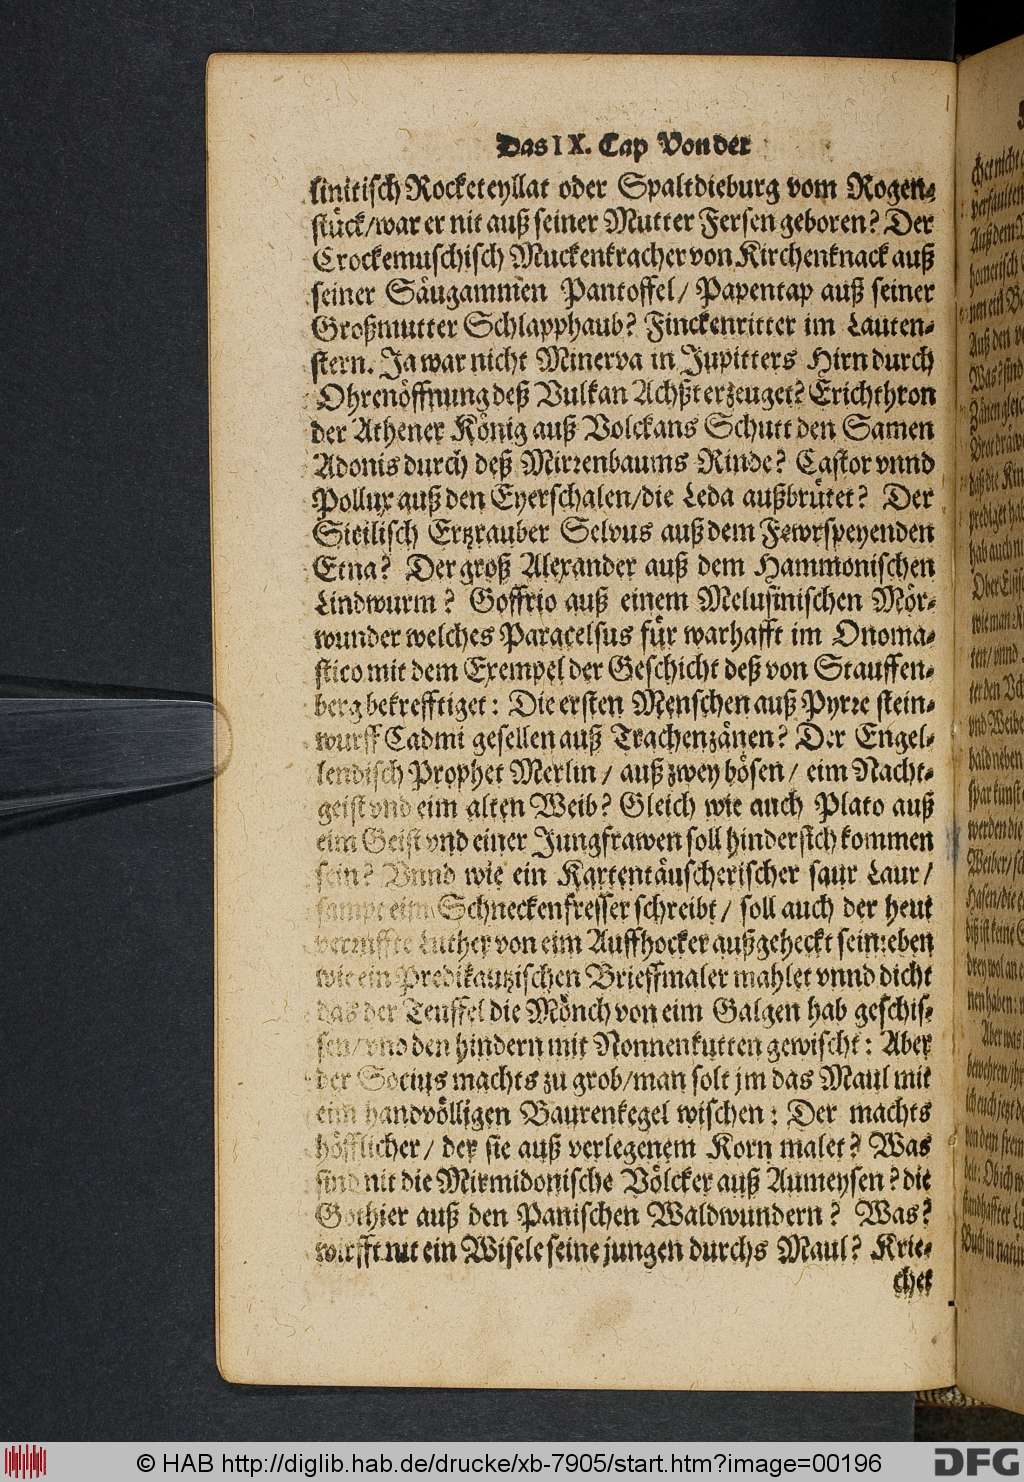 Das IX. Cap Von der
sinitisch Rocketeyllat oder Spaltdieburg vom Rogen⸗
stück/war er nit auß seiner Mutter Fersen geboren? Der
Crockemuschisch Muckenkracher von Kirchenknack auß
seiner Säugammen Pantoffel/ Papentap auß seiner
Großmutter Schlapphaub? Finckenritter im Lauten⸗
stern. Ja war nicht Minerva in Jupitters Hirn durch
Ohrenöffnung deß Vulkan Achßt erzeuget? Erichthron
der Athener König auß Volckans Schutt den Samen
Adonis durch deß Mirrenbaums Rinde? Castor vnnd
Pollux auß den Eyerschalen/die Leda außbrütet? Der
Sicilisch Ertzrauber Selvus auß dem Fewrspeyenden
Etna? Der groß Alexander auß dem Hammonischen
Lindwurm? Goffrio auß einem Melusinischen Mör⸗
wunder welches Paracelsus für warhafft im Onoma⸗
stico mit dem Exempel der Geschicht deß von Stauffen⸗
berg bekrefftiget: Die ersten Menschen auß Pyrre stein⸗
wurff Cadmi gesellen auß Trachenzänen? Der Engel⸗
lendisch Prophet Merlin/ auß zwey bösen/ eim Nacht⸗
geist vnd eim alten Weib? Gleich wie auch Plato auß
eim Geist vnd einer Jungfrawen soll hindersich kommen
sein? Vnnd wie ein Kartentäuscherischer saur Laur/
sampt eim Schneckenfresser schreibt/ soll auch der heut
verruffte Luther von eim Auffhocker außgeheckt sein:eben
wie ein Predikautzischen Brieffmaler mahlet vnnd dicht
das der Teuffel die Mönch von eim Galgen hab geschis⸗
sen/vnd den hindern mit Nonnenkutten gewischt: Aber
der Socius machts zu grob/man solt jm das Maul mit
eim handvölligen Baurenkegel wischen: Der machts
höfflicher/ der sie auß verlegenem Korn malet? Was
sind nit die Mirmidonische Völcker auß Aumeysen? die
Gothier auß den Panischen Waldwundern? Was?
wirfft nit ein Wisele seine jungen durchs Maul? Krie⸗
chet
© HAB http://diglib.hab.de/drucke/xb-7905/start.htm?image=00196
DFG